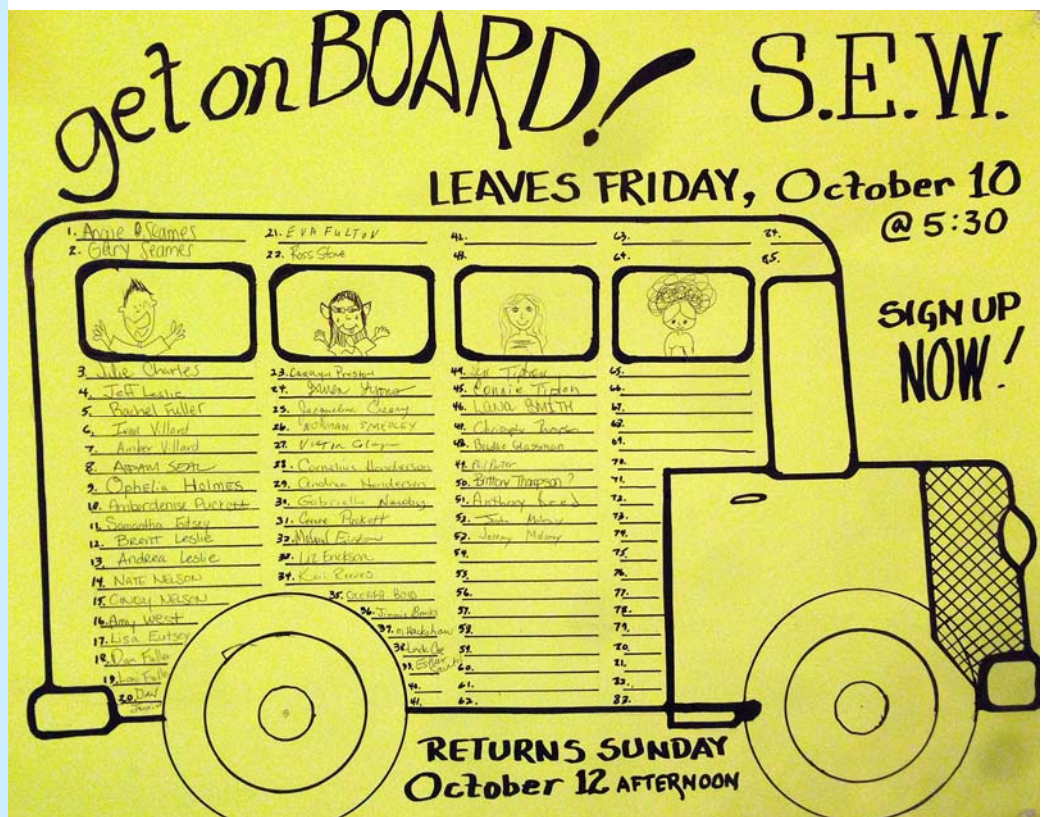 get on BOARD!
S.E.W.
LEAVES FRIDAY, October 10
@ 5:30
SIGN UP
NOW!
1. Angie Seames
2. Gary Seames
3. Julie Charles
4. Jeff Leslie
5. Rachel Fuller
6. Ivan Villard
7. Amber Villard
8. ADAM SEAL
9. Ophelia Holmes
10. Amberdenise Puckett
11. Samantha
12. BRENT Leslie
13. Andrea Leslie
14. NATE NELSON
15. CINDY NELSON
16. Amy West
17. Lisa Eutsey
18. Dan Fuller
19. Lori Fuller
20.
21. EVA FULTON
22. Ross Stone
23. Carolyn Preston
24.
25. Jacqueline
26. NORMAN SMEDLEY
27.
28. Cornelius Henderson
29. Andrea Henderson
30. Gabrielle Newby
31. Puckett
32. Erickson
33. Liz Erickson
34. Reeves
35. GEORGE BOYD
36. Jimmie
37. M Hackshaw
38. Linda
39.
40.
41.
42.
43.
44. Tipton
45. Connie Tipton
46. LANA SMITH
47. Christopher Thompson
48. Glassman
49.
50. Brittony Thompson ?
51. Anthony Reed
52. Maloney
53. Jeremy Maloney
54.
55.
56.
57.
58.
59.
60.
61.
62.
63.
64.
65.
66.
67.
68.
69.
70.
71.
72.
73.
74.
75.
76.
77.
78.
79.
83.
84.
85.
RETURNS SUNDAY
October 12 AFTERNOON